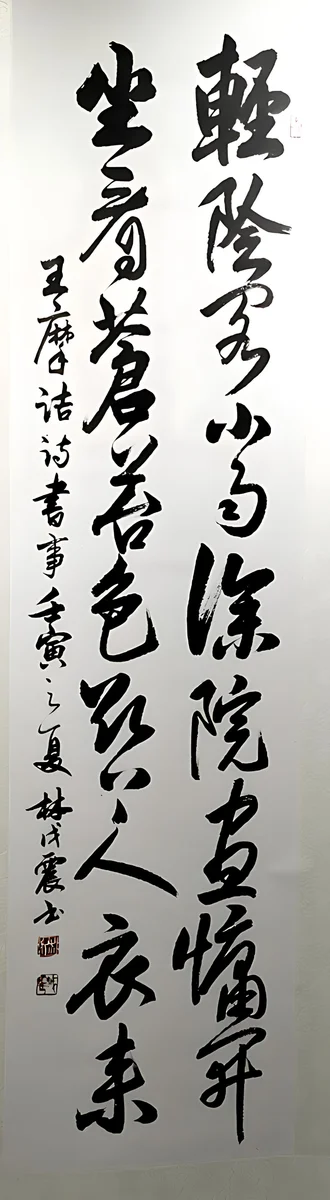 輕陰閣小雨深院晝慵開
坐看蒼苔色欲上人衣來
王摩詰詩書事壬寅之夏林震書